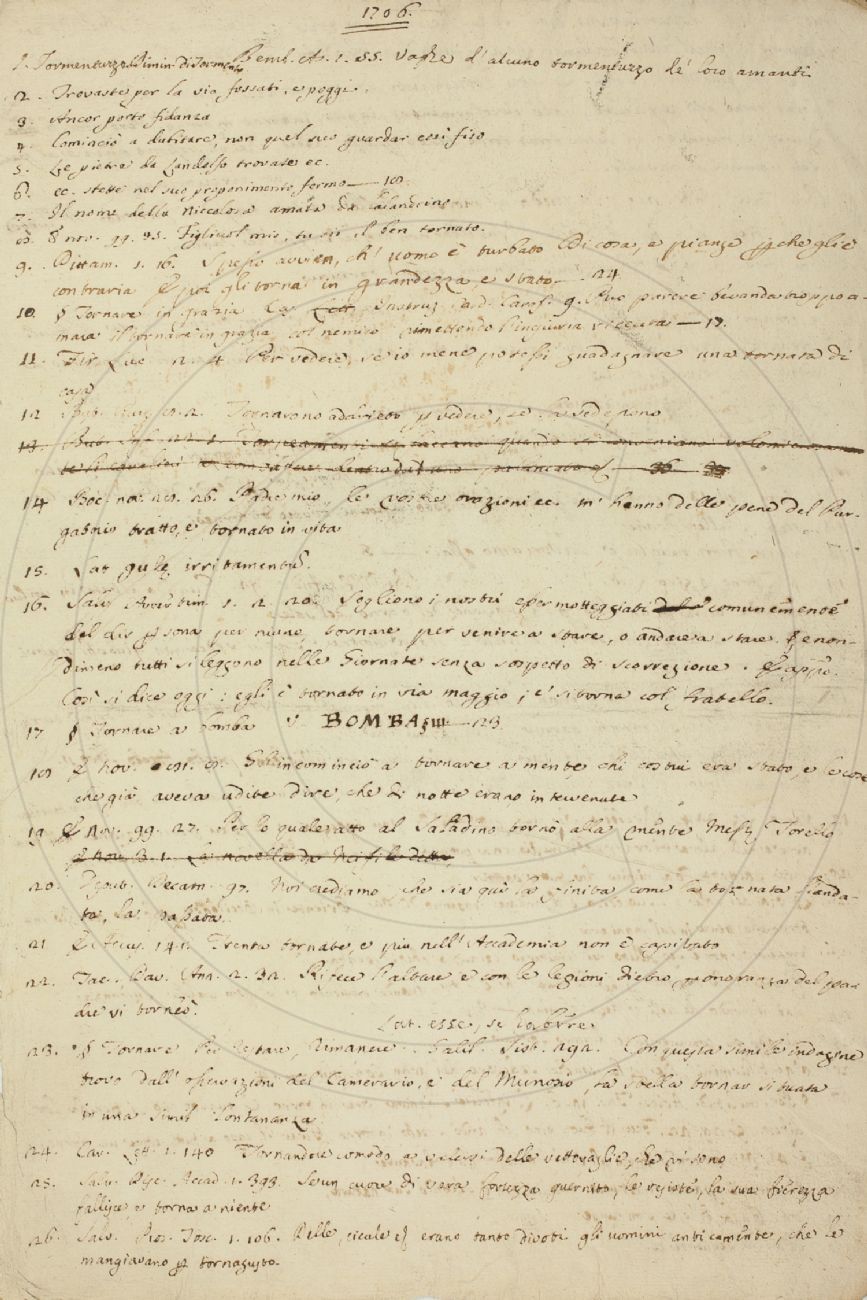 1706.
1. Tormentuzzo Dimin. di Tormento Bemb. As. 1. 55. Vaghe d'alcuno tormentuzzo de' loro amanti
2. Trovaste per la via fossati, e poggi.
3. Ancor porto fidanza
4. Cominciò a dubitare, non quel suo guardar così fiso
5. Le pietre da Landolfo trovate ec.
6. ec. stette nel suo proponimento fermo
7. Il nome della Niccolosa amata da Calandrino
8. nov. 99. 45. Figliuol mio, tu sii il ben tornato.
9. Dittam. 1. 16. Spesso avvien, ch' uomo è turbato Di cosa, e piange perchè gli è
contraria E poi gli torna in grandezza, e stato 24
10. § Tornare in grazia Ca. Lett. Instruz. 9. può parere bevanda troppo a-
mara il tornare in grazia col nemico rimettendo l'ingiuria ricevuta — 19.
11. Fir. Luc. 2. 4 Per vedere, se io me ne potessi guadagnare una tornata di
casa
12 2. Tornarono addrieto per vedere, se la vedessono
13.
14 Boc. no. 28. 26. Padre mio, le vostre orazioni ec. m' hanno delle pene del Pur-
gatorio tratto, e tornato in vita
15. Lat gulę irritamentum.
16. Salv. Avvertim. 1. 2. 20. Sogliono i nostri esser motteggiati comunemente
del dir persona per niuno, tornare per venire a stare, o andare a stare. E non-
dimeno tutti si leggono nelle Giornate senza sospetto di scorrezione. E appo.
Così si dice oggi: egli è tornato in via maggio; e' si torna col fratello.
17 § Tornare a bomba V. BOMBA § III. 123
18 E nov. Gl' incominciò a tornare a mente chi costui era stato, e le cose
che già aveva udite dire, che di notte erano intervenute
19 E no. 99. 27. Per lo quale atto al Saladino tornò alla mente Messer Torello
E nov. 3. 1. La novella da Neifile detta
20. Deput. Decam. 97. Noi crediamo, che sia quì la finita come la tornata, l'anda-
ta, la
21 E Accus. 141. Trenta tornate, e più nell' Accademia non è capitato
22. Tac. Dav. Ann. 2. 32. Rifece l'altare e con le legioni dietro, per onoranza del pa-
dre vi torneò.
Lat. esse, se habere
23. § Tornare Per Restare, Rimanere. Galil. Sist. 292. Con questa simile indagine
trovo dall' osservazioni del Camerario, e del Munosio, la stella tornar situata
in una simil lontananza
24. Car. Lett. 1. 140 Tornandoci comodo a valersi delle vettovaglie, che vi sono
25. Salv. Disc. Accad. 1. 393. Se un cuore di vera fortezza guernito, le resiste, la sua fierezza
fallisce, e torna a niente
26. Salv. Pros. Tosc. 1. 106. Delle cicale erano tanto divoti gli uomini anticamente, che le
mangiavano per tornagusto.